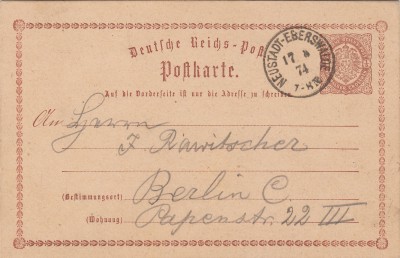 Deutsche Reichs-Post
Postkarte.
NEUSTADT-EBERSWALDE
17 8
74
7-8N
Auf die Vorderseite ist nur die Adresse zu schreiben
An Herrn
J. Rawitscher
(Bestimmungsort) Berlin C.
(Wohnung) Papenstr. 22 III